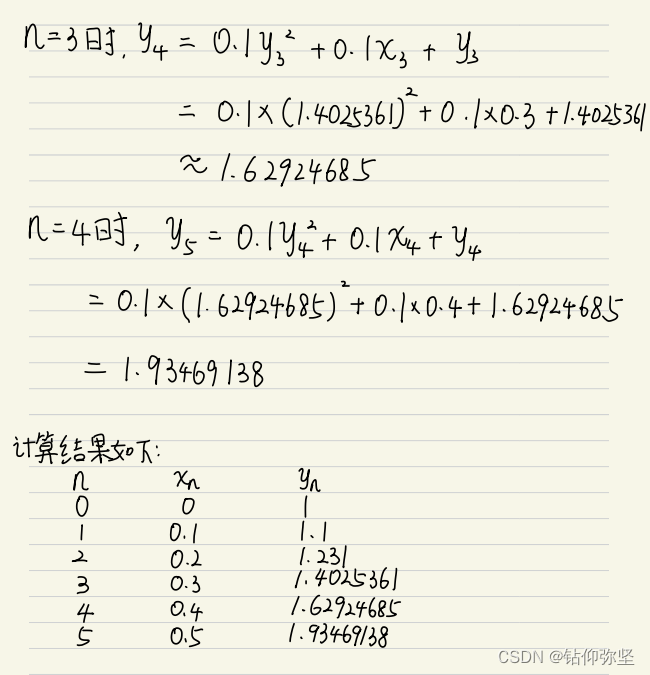 n=3时, y₄ = 0.1y₃² + 0.1x₃ + y₃
= 0.1×(1.4025361)² + 0.1×0.3 + 1.4025361
≈ 1.62924685
n=4时, y₅ = 0.1y₄² + 0.1x₄ + y₄
= 0.1×(1.62924685)² + 0.1×0.4 + 1.62924685
= 1.93469138
计算结果如下:
n xₙ yₙ
0 0 1
1 0.1 1.1
2 0.2 1.231
3 0.3 1.4025361
4 0.4 1.62924685
5 0.5 1.93469138
CSDN @钻仰弥坚